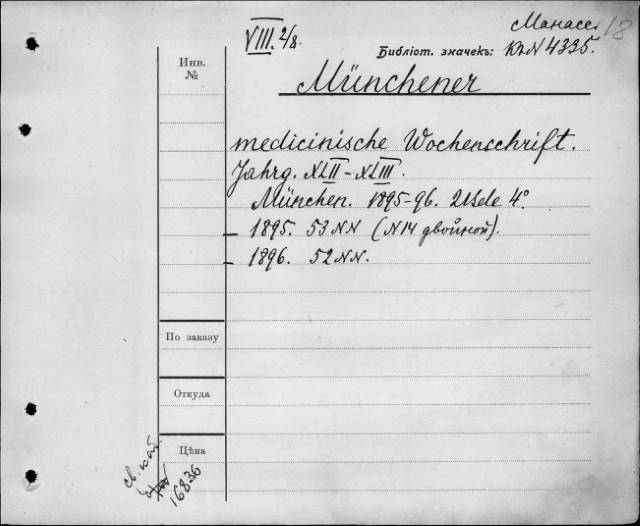 Манасс. 18
VIII. 2/8.
Библіот. значекъ: КкN 4335.
Инв.
№
Münchener
medicinische Wochenschrift.
Jahrg. XLII-XLIII.
München. 1895-96. 2 Bde 4°
— 1895. 53 NN (N 14 двойной).
— 1896. 52 NN.
По заказу
Откуда
Цѣна
св. кат.
16836